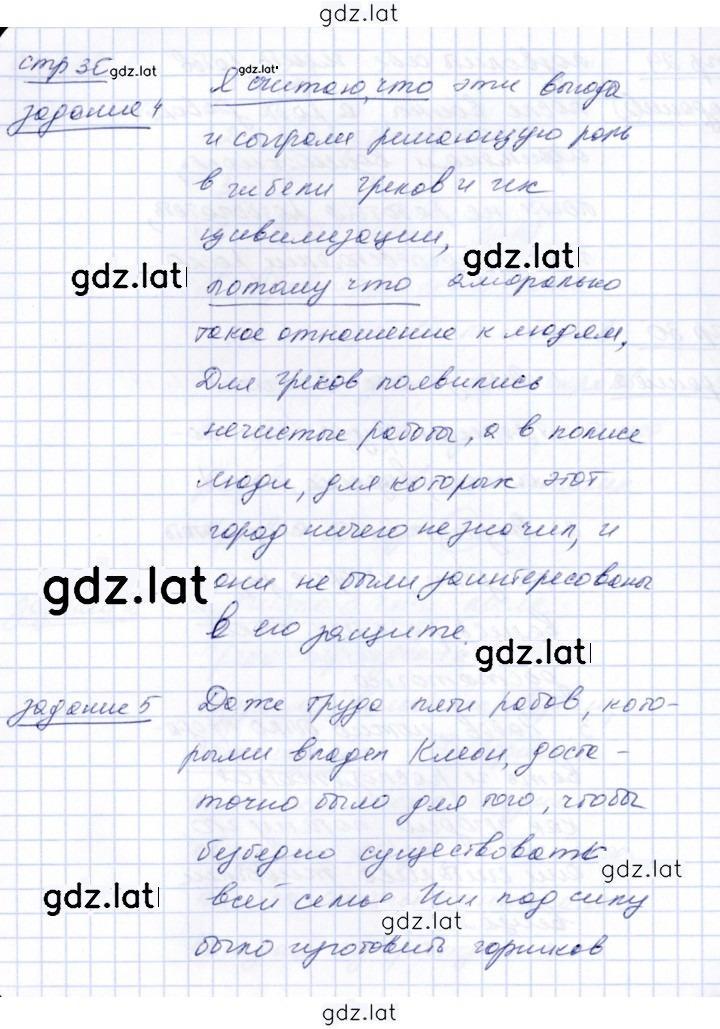 gdz.lat
стр 36 gdz.lat
gdz.lat
Я считаю, что эти выгода
задание 4
и сыграли решающую роль
в гибели греков и их
цивилизации,
gdz.lat
gdz.lat
потому что аморально
такое отношение к людям,
Для греков появились
нечистые работы, а в полисе
люди, для которых этот
город ничего не значил, и
gdz.lat
они не были заинтересованы
в его защите.
gdz.lat
задание 5
Даже труда пяти рабов, кото-
рыми владел Клеон, доста-
точно было для того, чтобы
безбедно существовать
gdz.lat
всей семье Им под силу
gdz.lat
gdz.lat
было изготовить горшков
gdz.lat